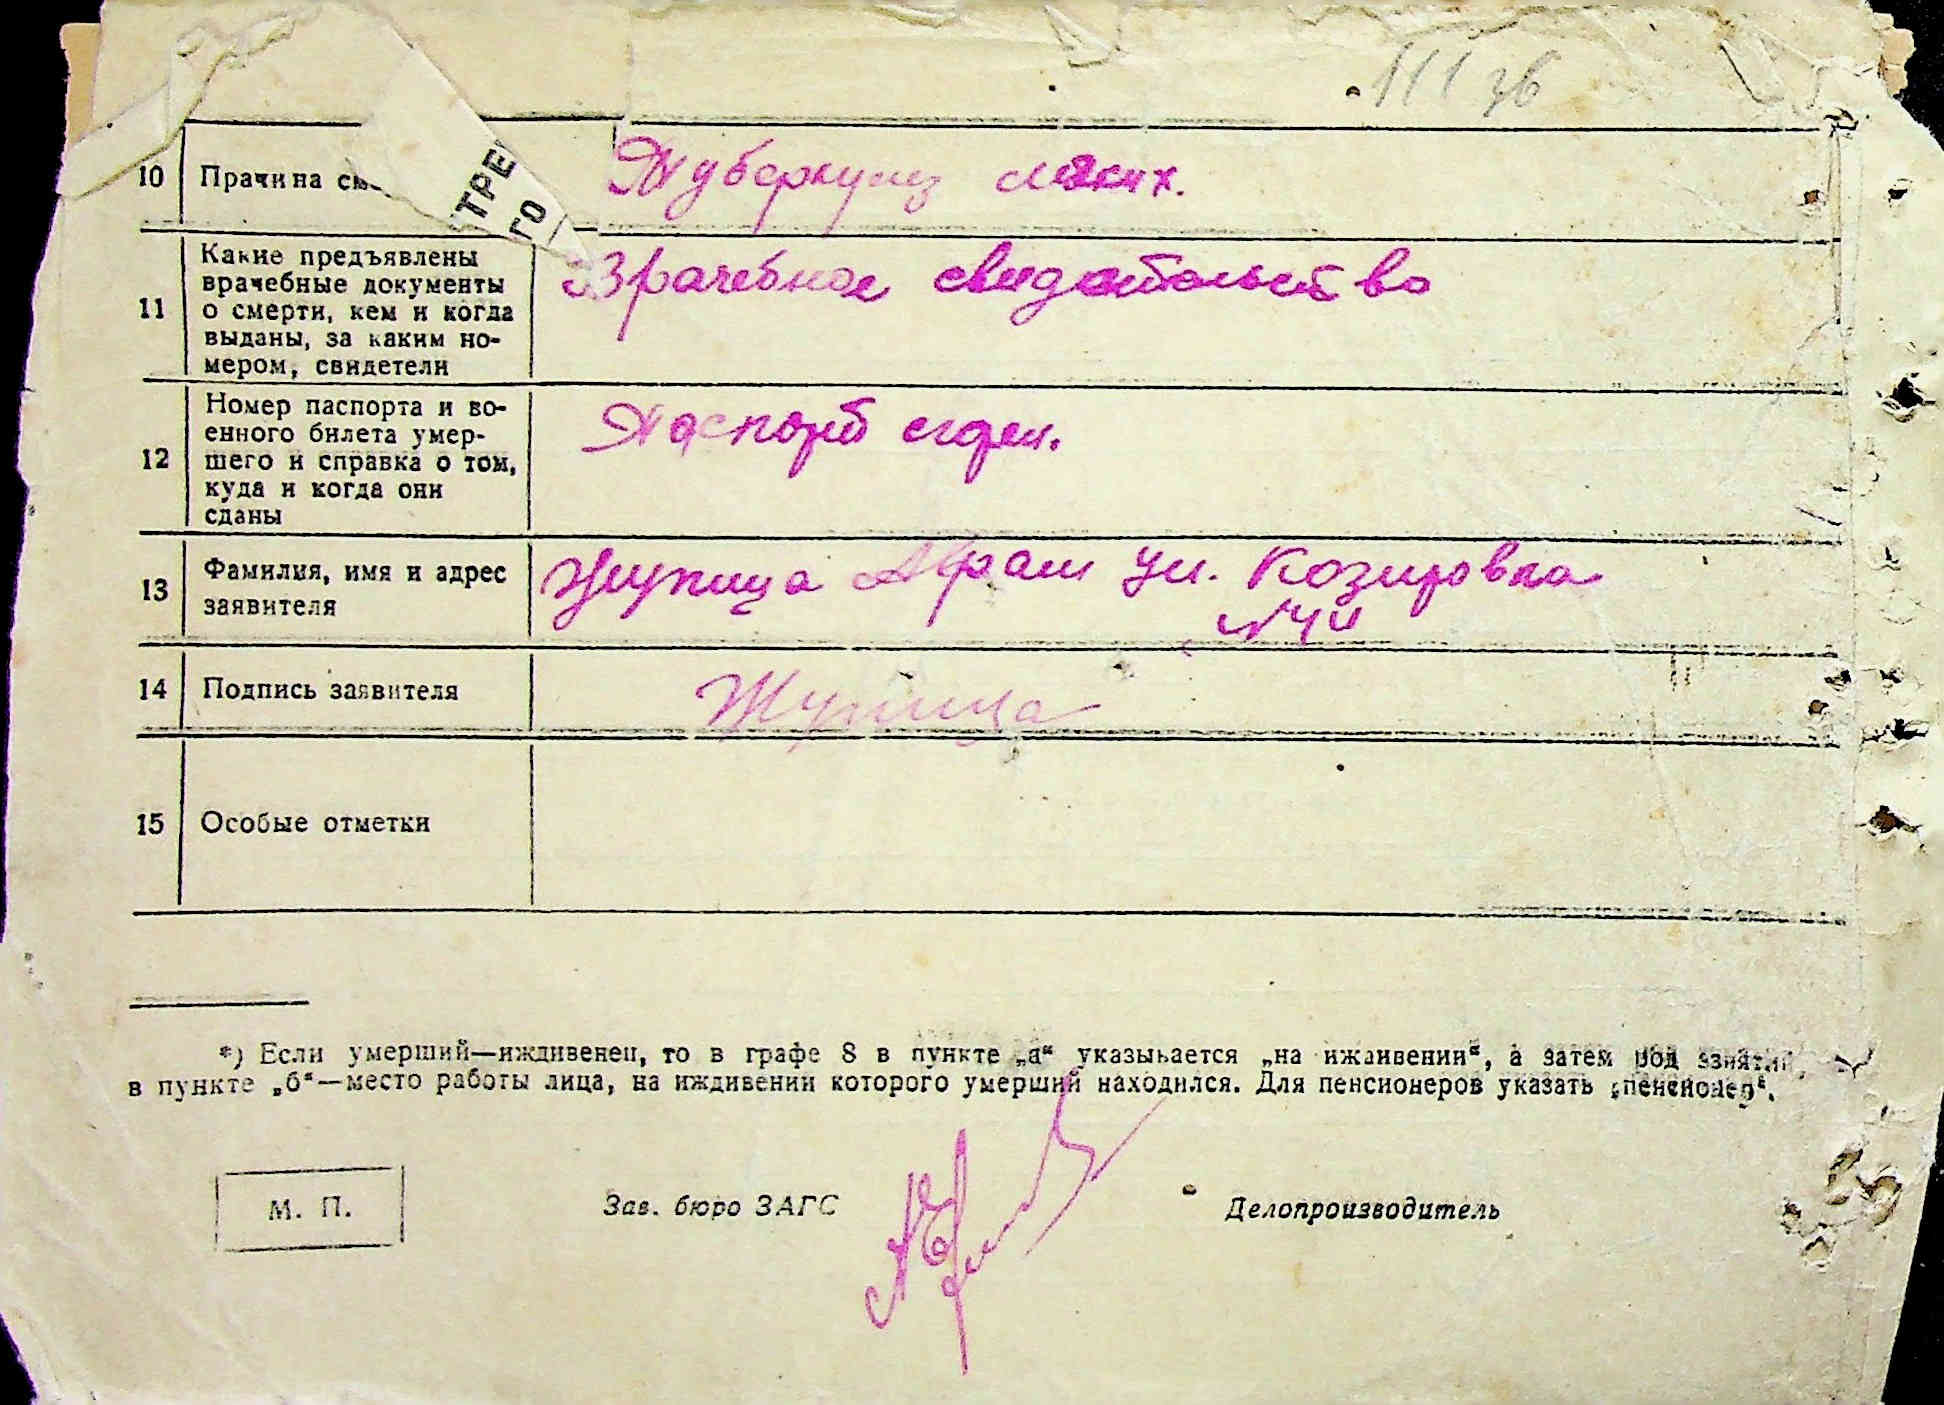 10 Причина
ТРЕ
ГО
Туберкулез легких.
11 Какие предъявлены
врачебные документы
о смерти, кем и когда
выданы, за каким но-
мером, свидетели
Врачебное свидетельство
12 Номер паспорта и во-
енного билета умер-
шего и справка о том,
куда и когда они
сданы
Паспорт
13 Фамилия, имя и адрес
заявителя
Жупица Абрам ул. Козыровка
14 Подпись заявителя
Жупица
15 Особые отметки
*) Если умерший—иждивенец, то в графе 8 в пункте „а“ указывается „на иждивении“, а затем
в пункте „б“—место работы лица, на иждивении которого умерший находился. Для пенсионеров указать „пенсионер“.
М. П.
Зав. бюро ЗАГС
Делопроизводитель